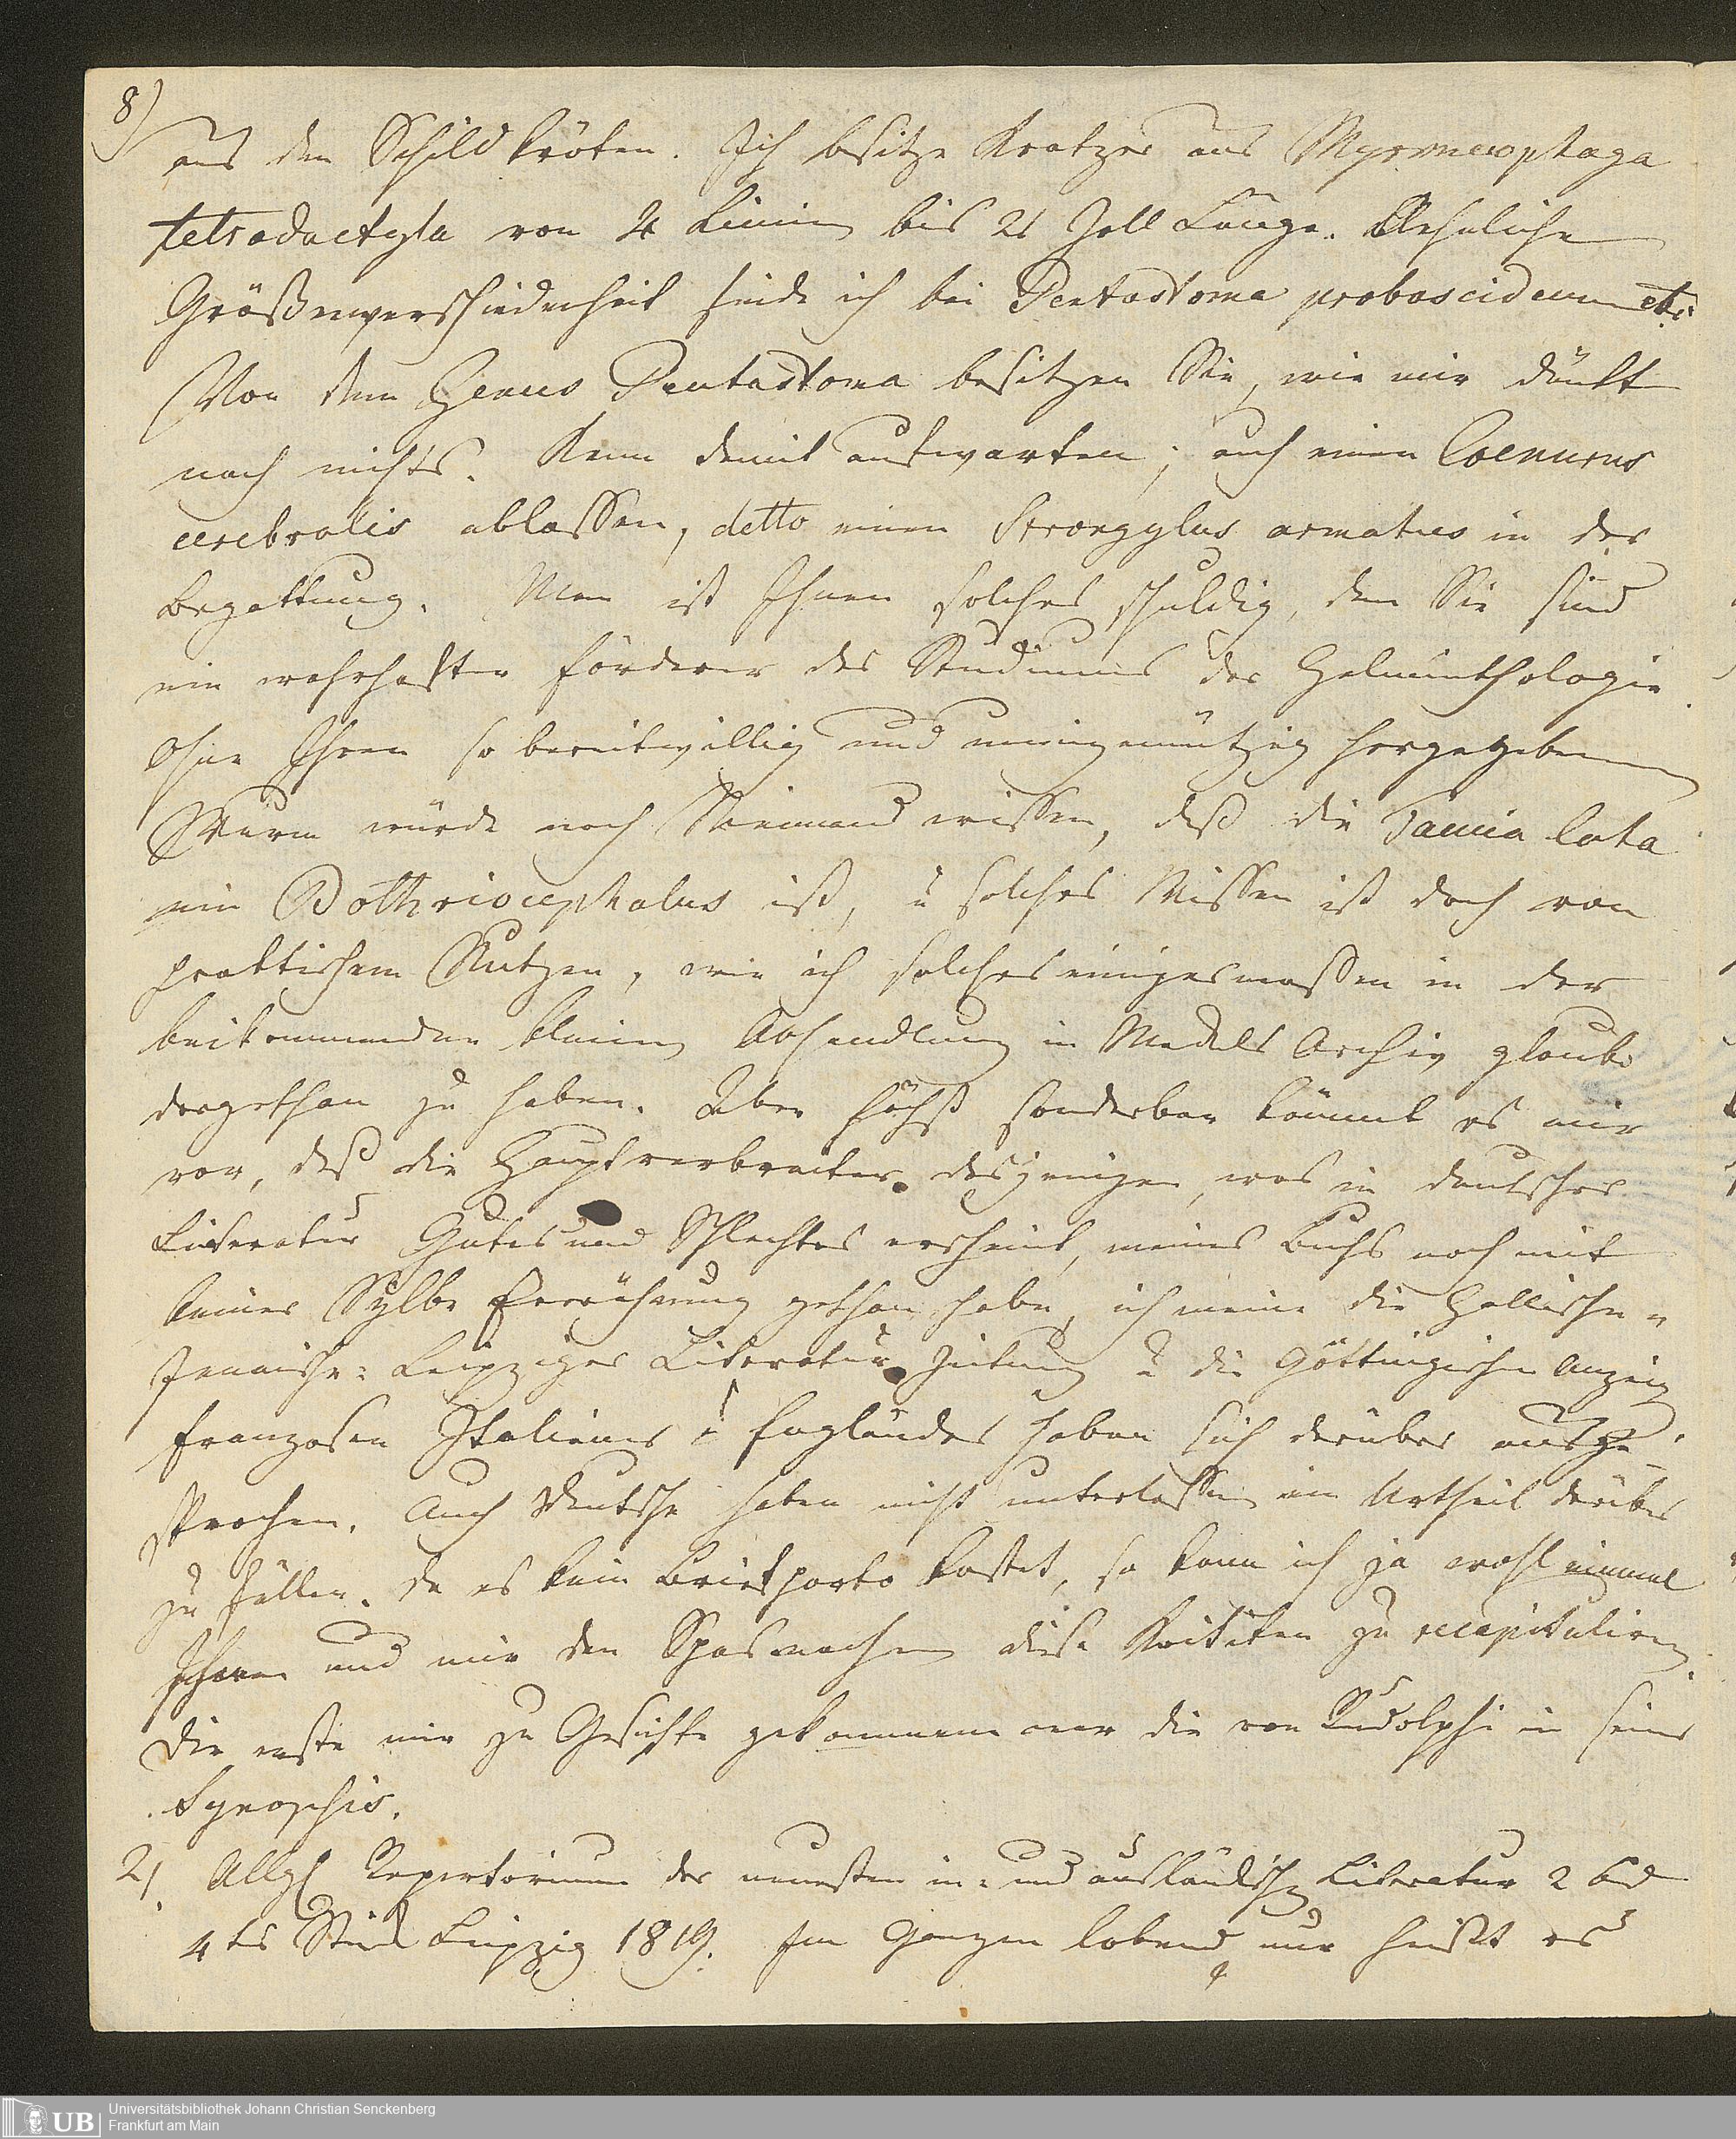 8)
aus den Schildkröten. Ich besitze Kratzer aus Myrmecophaga
tetradactyla von 4 Linien bis 21 Zoll Länge. Aehnliche
Größenverschiedenheit finde ich bei Pentastoma proboscideum etc.
Von dem Genus Pentastoma besitzen Sie, wie mir dünkt
noch nichts. Kann damit aufwarten; auch einen Coenurus
cerebralis ablassen, detto einen Strongylus armatus in der
Begattung. Man ist Ihnen solches schuldig, denn Sie sind
ein wahrhafter Förderer des Studiums der Helminthologie
Ohne Ihren so bereitwillig und uneigennützig hergegebenen
Wurm würde noch Niemand wissen, daß die Taenia lata
ein Bothriocephalus ist, u solches Wissen ist doch von
praktischem Nutzen, wie ich solches einigermassen in der
beikommenden kleinen Abhandlung in Meckels Archiv glaube
dargethan zu haben. Aber höchst sonderbar kömmt es mir
vor, daß die Hauptverbreiter desjenigen, was in deutscher
Literatur Gutes und Schlechtes erscheint, meines Buchs noch mit
keiner Sylbe Erwähnung gethan habe, ich meine die Hallische-
Jenaische- Leipziger Literatur Zeitung u die Göttingischen Anzeig
Franzosen Italiener u Engländer haben sich darüber ausge-
sprochen. Auch Deutsche haben nicht unterlassen ein Urtheil darüber
zu fällen. Da es kein Briefporto kostet, so kann ich ja wohl einmal
Ihnen und mir den Spas machen diese Kritiken zu recapituliren
Die erste mir zu Gesichte gekommene war die von Rudolphi in seiner
Synopsis.
2) Allg Repertorium der neuesten in- und ausländisch Literatur 2 Bd
4tes Stück Leipzig 1819. Im Ganzen lobend, nur heißt es
Universitätsbibliothek Johann Christian Senckenberg
Frankfurt am Main
UB